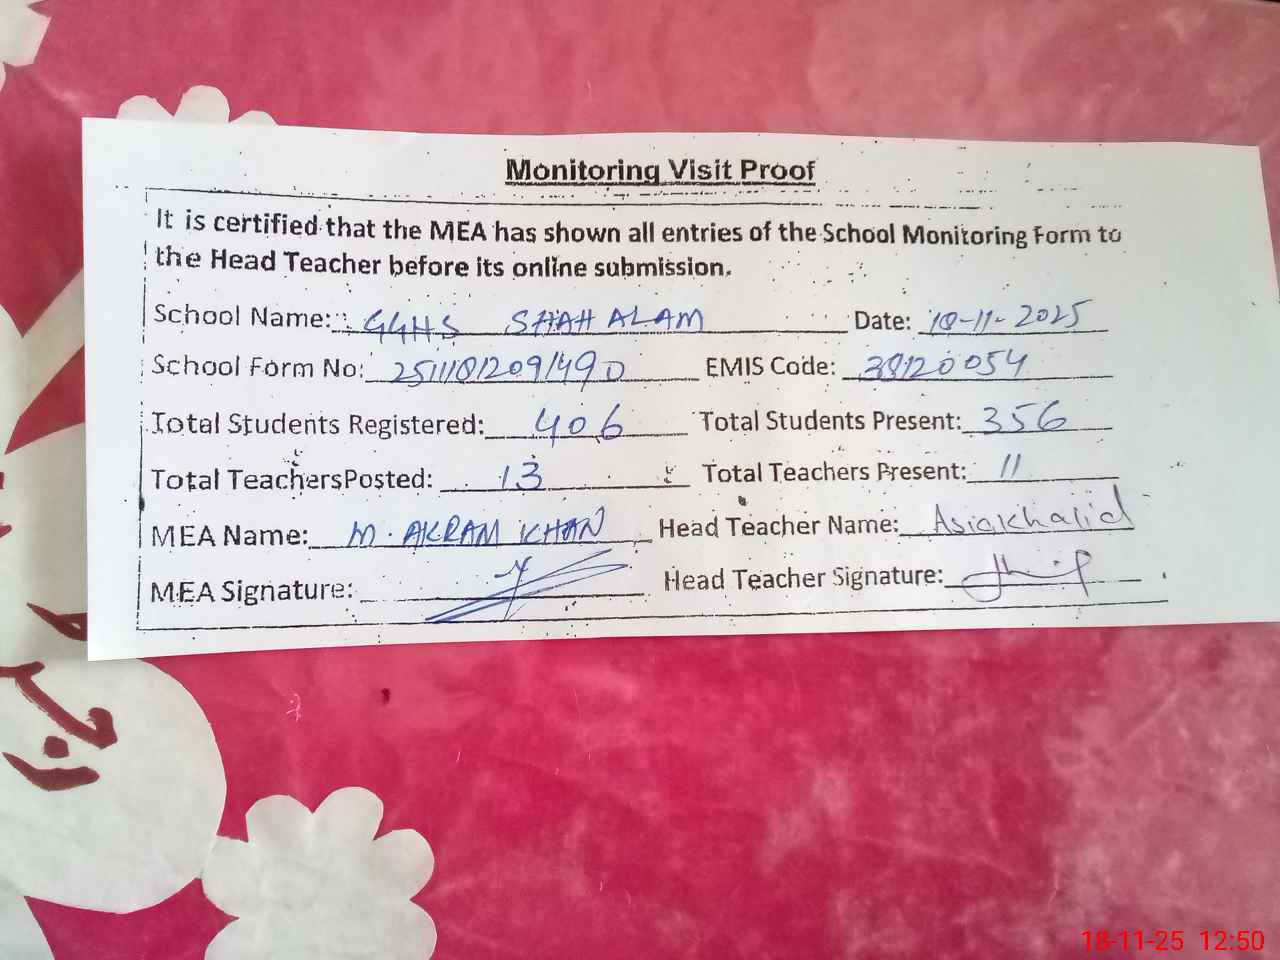 Monitoring Visit Proof
It is certified that the MEA has shown all entries of the School Monitoring Form to
the Head Teacher before its online submission.
School Name: GGHS SHAH ALAM Date: 18-11-2025
School Form No: 251118120911490 EMIS Code: 38120054
Total Students Registered: 406 Total Students Present: 356
Total TeachersPosted: 13 Total Teachers Present: 11
MEA Name: M. AKRAM KHAN Head Teacher Name: Asia Khalid
MEA Signature: Head Teacher Signature:
18-11-25 12:50